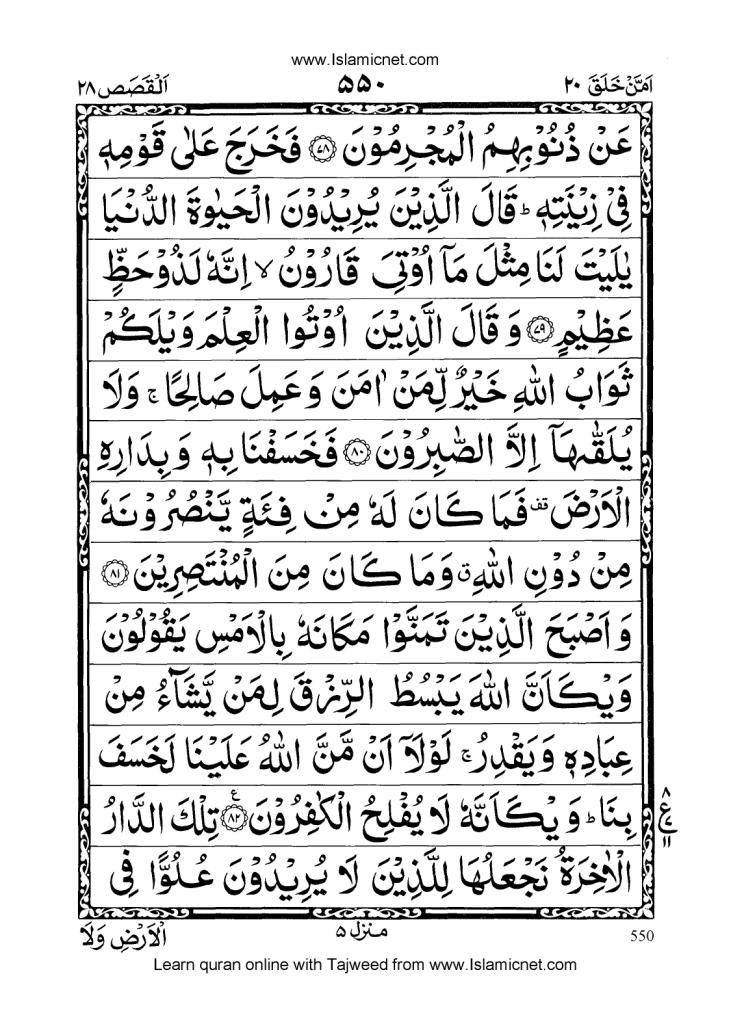 www.Islamicnet.com
اَمَّنْ خَلَقَ ٢٠ ۵۵۰ اَلْقَصَص ٢٨
عَنْ ذُنُوْبِهِمُ الْمُجْرِمُوْنَ ﴿۷۸﴾ فَخَرَجَ عَلٰى قَوْمِهٖ
فِىْ زِيْنَتِهٖ ؕ قَالَ الَّذِيْنَ يُرِيْدُوْنَ الْحَيٰوةَ الدُّنْيَا
يٰلَيْتَ لَنَا مِثْلَ مَاۤ اُوْتِىَ قَارُوْنُ ۙ اِنَّهٗ لَذُوْ حَظٍّ
عَظِيْمٍ ﴿۷۹﴾ وَ قَالَ الَّذِيْنَ اُوْتُوا الْعِلْمَ وَيْلَكُمْ
ثَوَابُ اللّٰهِ خَيْرٌ لِّمَنْ اٰمَنَ وَ عَمِلَ صَالِحًا ۚ وَلَا
يُلَقّٰىهَاۤ اِلَّا الصّٰبِرُوْنَ ﴿۸۰﴾ فَخَسَفْنَا بِهٖ وَ بِدَارِهِ
الْاَرْضَ ۫ فَمَا كَانَ لَهٗ مِنْ فِئَةٍ يَّنْصُرُوْنَهٗ
مِنْ دُوْنِ اللّٰهِ ۗ وَمَا كَانَ مِنَ الْمُنْتَصِرِيْنَ ﴿۸۱﴾
وَ اَصْبَحَ الَّذِيْنَ تَمَنَّوْا مَكَانَهٗ بِالْاَمْسِ يَقُوْلُوْنَ
وَيْكَاَنَّ اللّٰهَ يَبْسُطُ الرِّزْقَ لِمَنْ يَّشَآءُ مِنْ
عِبَادِهٖ وَيَقْدِرُ ۚ لَوْلَاۤ اَنْ مَّنَّ اللّٰهُ عَلَيْنَا لَخَسَفَ
بِنَا ؕ وَيْكَاَنَّهٗ لَا يُفْلِحُ الْكٰفِرُوْنَ ﴿۸۲﴾ ع تِلْكَ الدَّارُ
۸ ع ۷ ۱۱
الْاٰخِرَةُ نَجْعَلُهَا لِلَّذِيْنَ لَا يُرِيْدُوْنَ عُلُوًّا فِى
550 منزل ۵ الْاَرْضِ وَلَا
Learn quran online with Tajweed from www.Islamicnet.com